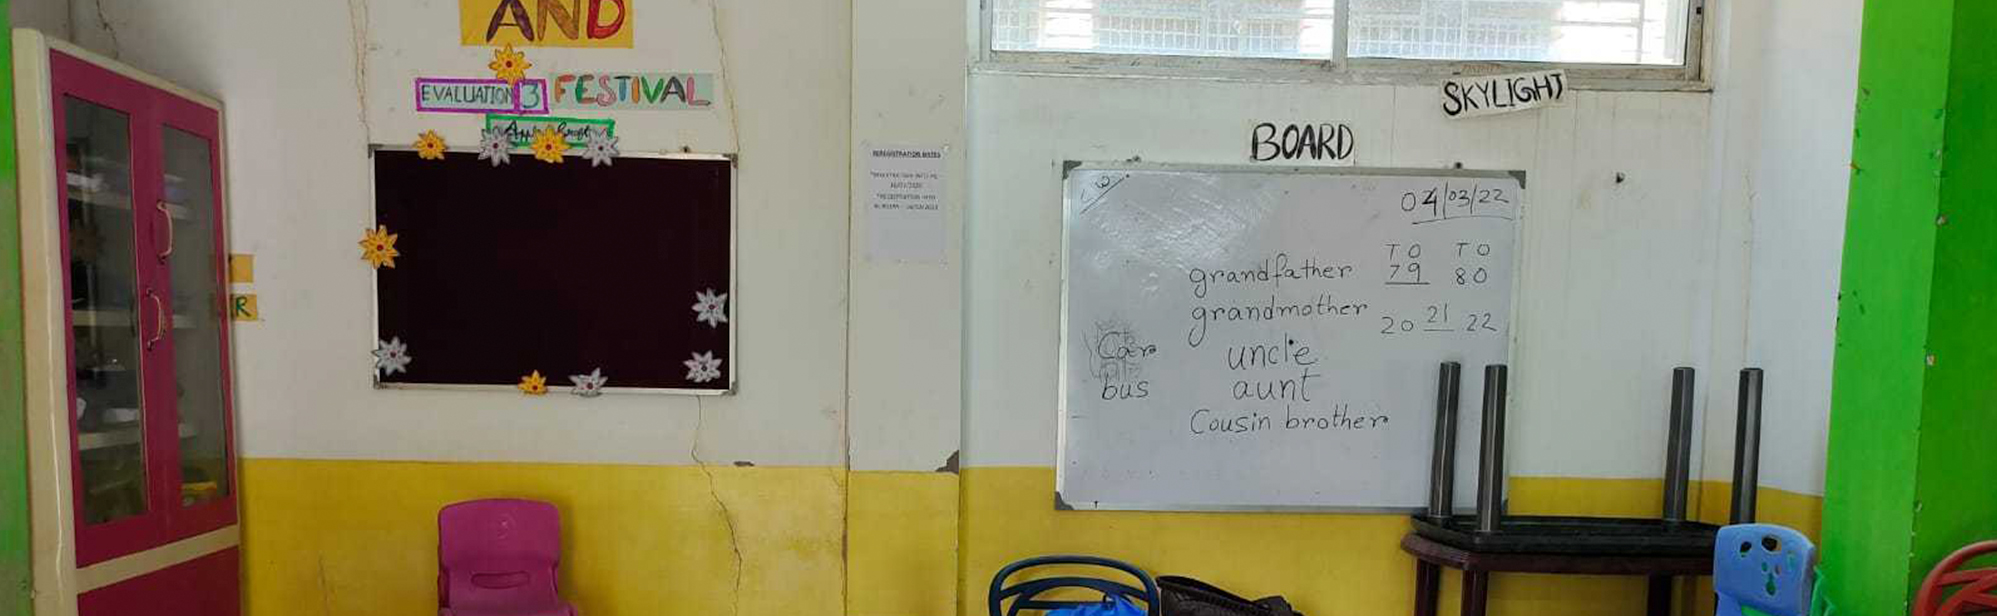 AND
EVALUATION 3 FESTIVAL
R
REREGISTRATION DATES
SKYLIGHT
BOARD
04/03/22
T O T O
grandfather 79 80
grandmother
20 21 22
Car uncle
bus aunt
Cousin brother